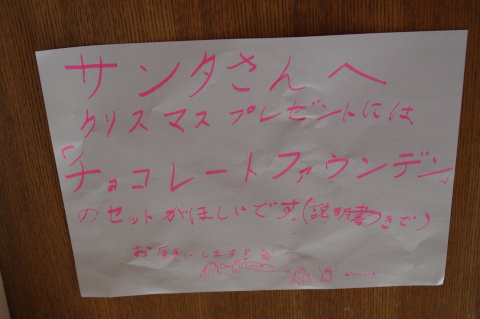 サンタさんへ
クリスマスプレゼントには
「チョコレートファウンデン」
のセットがほしいです。(説明書つきで)
お願いします?